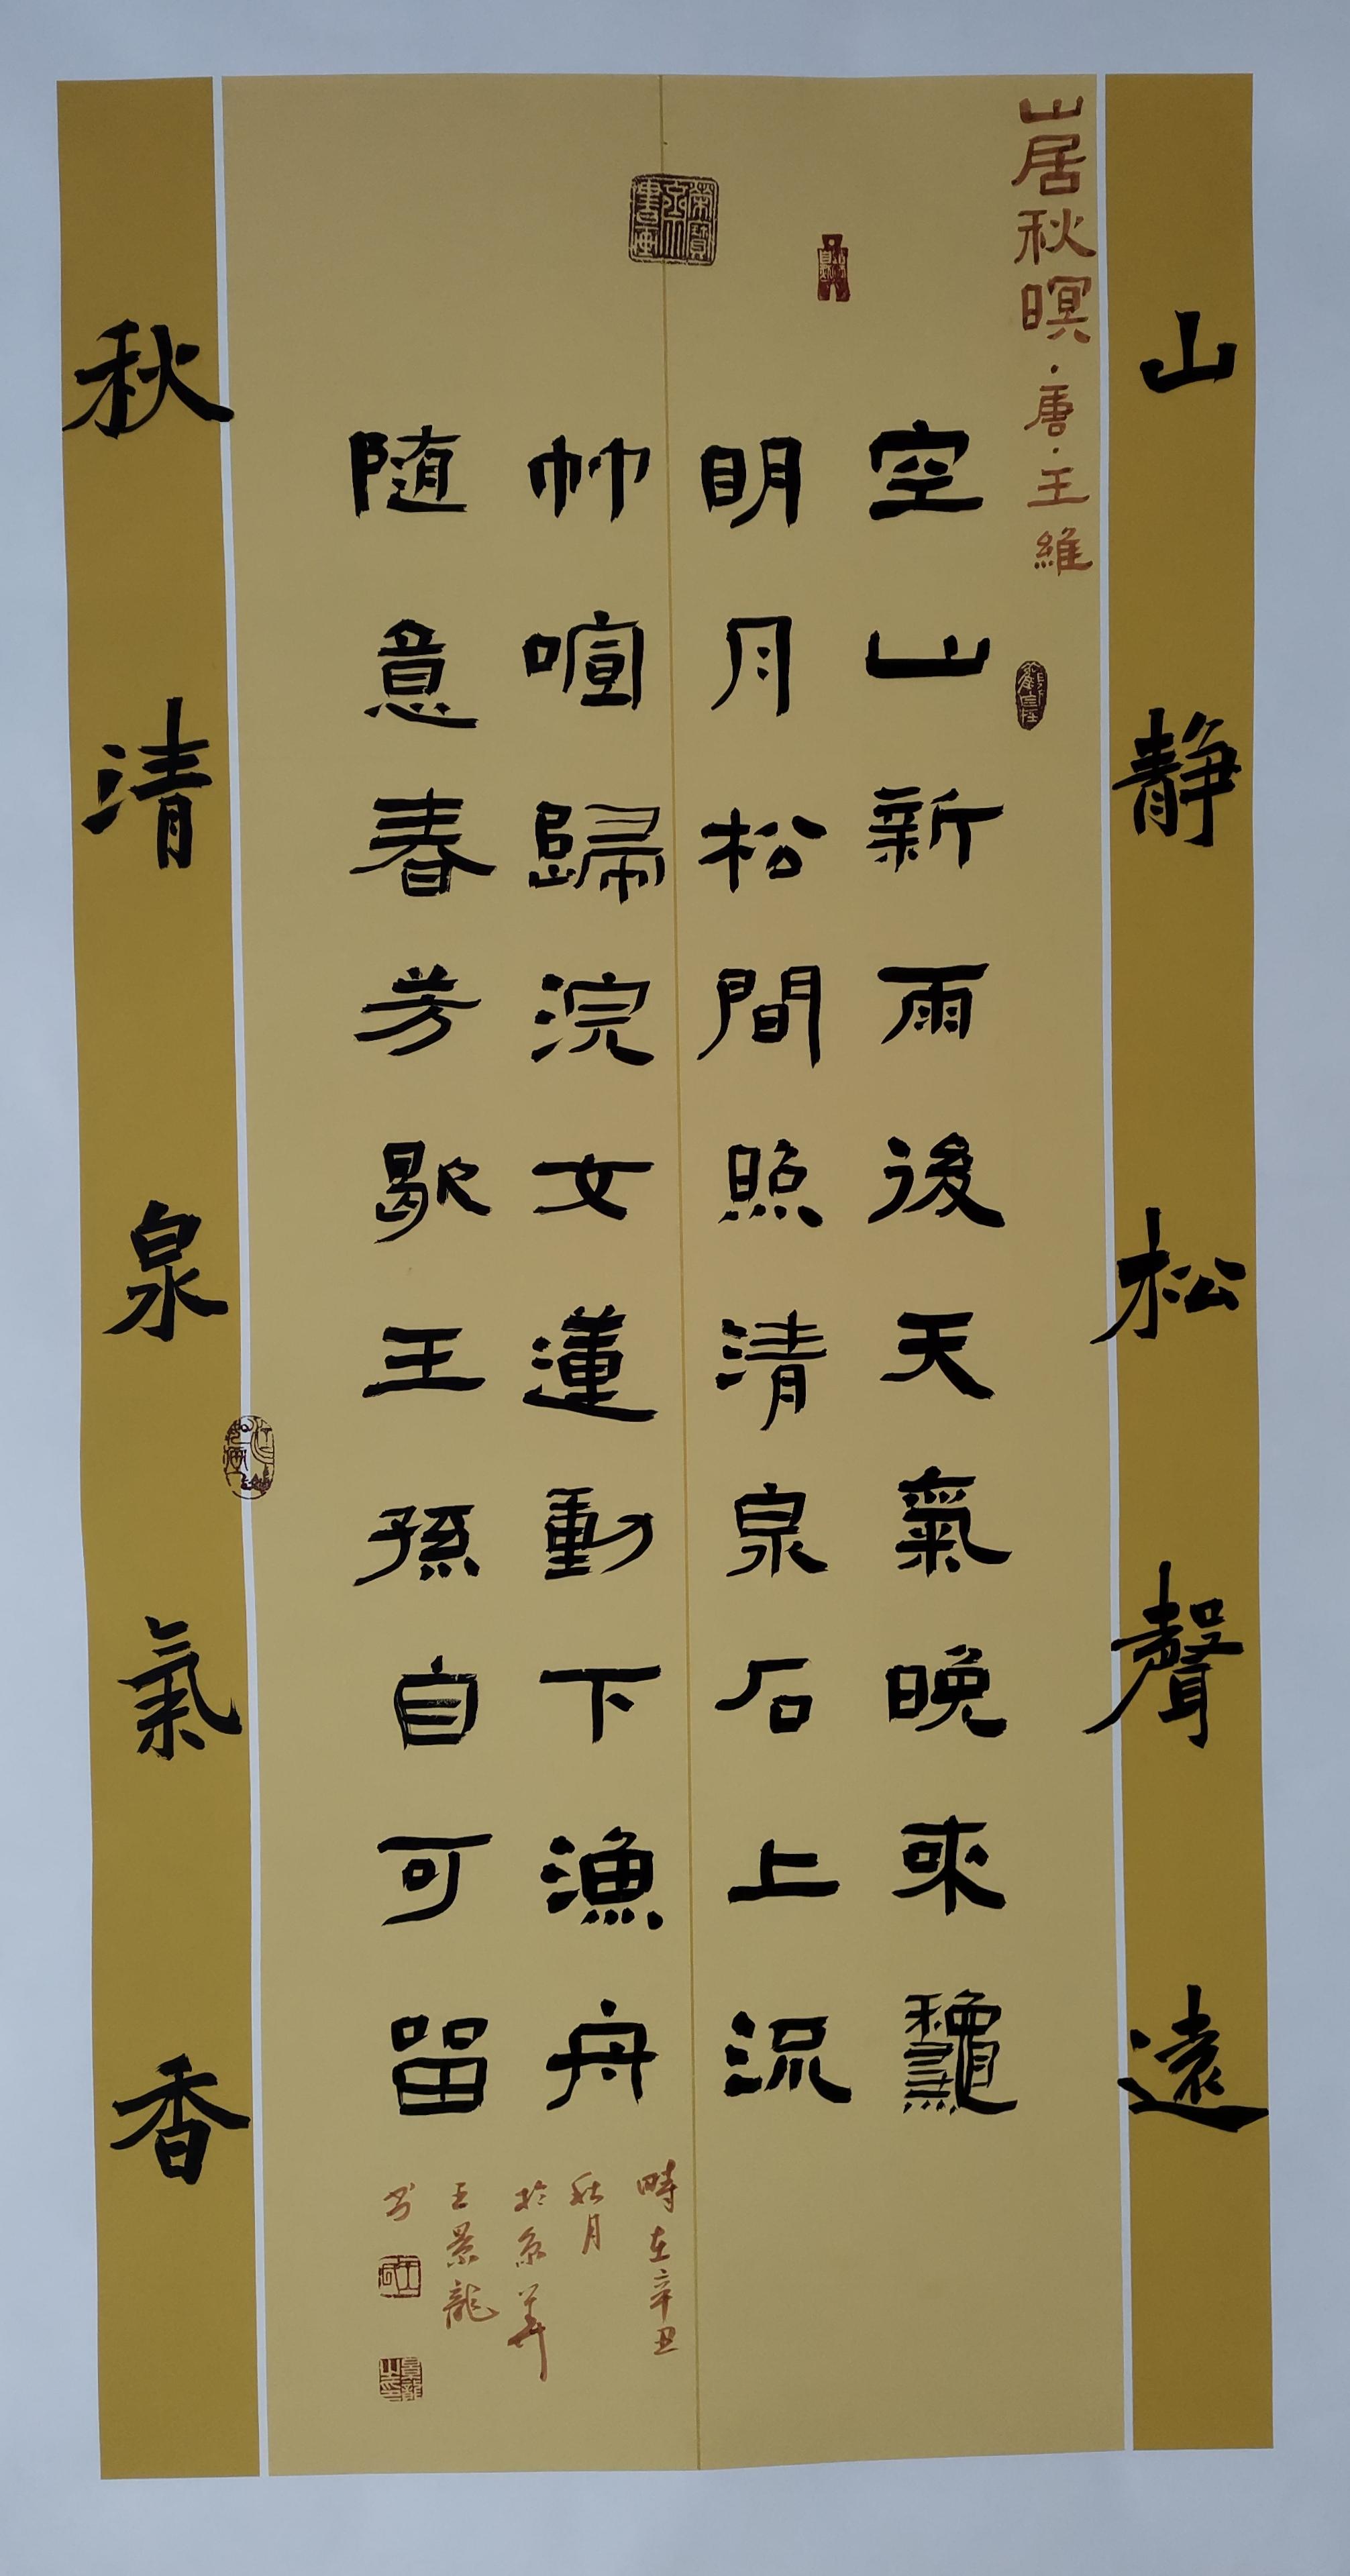 山静松聲遠
山居秋暝·唐·王維
空山新雨後天氣晚來龝
明月松間照清泉石上流
竹喧歸浣女蓮動下漁舟
随意春芳歇王孫自可留
時在辛丑
秋月
於京華
王景龍
书
秋清泉氣香